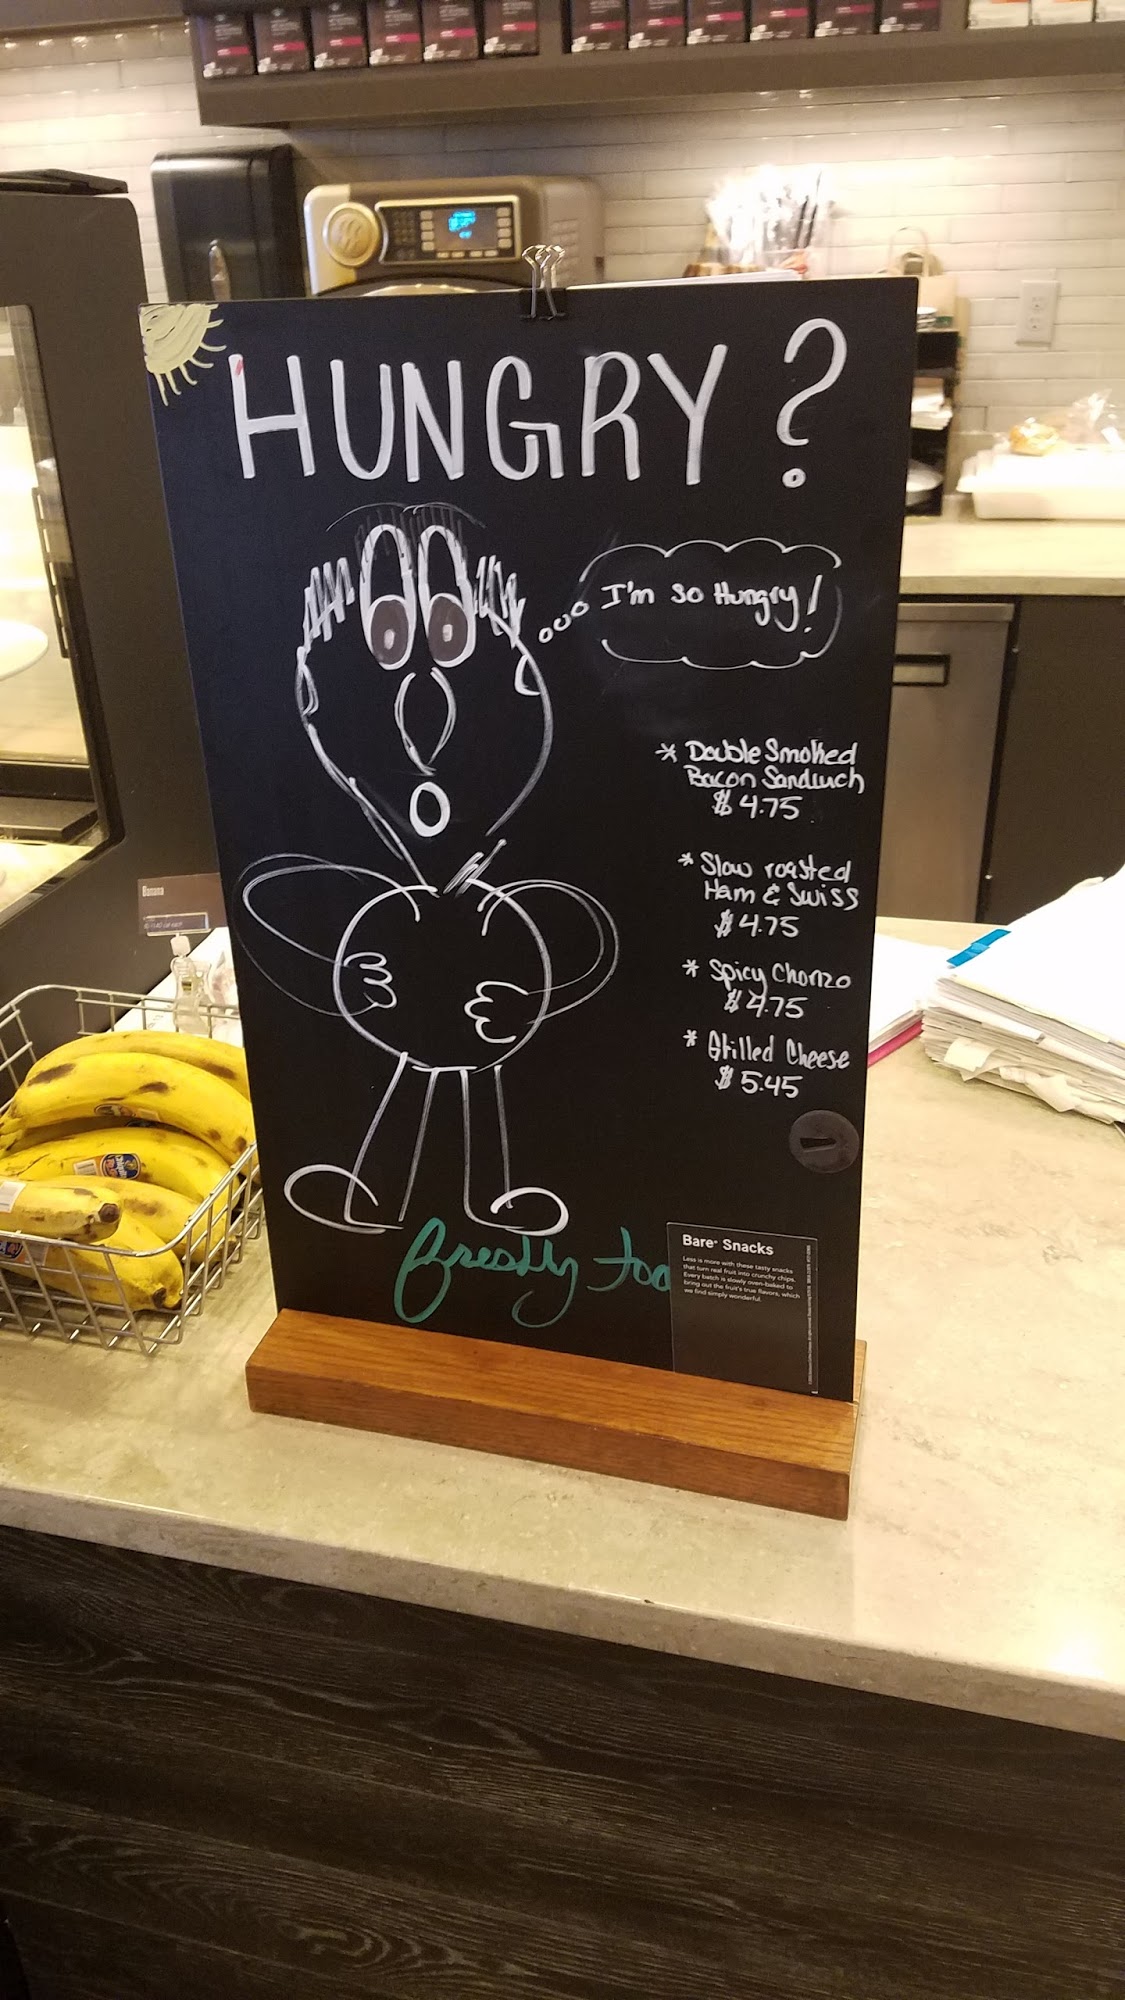 HUNGRY?
I'm so Hungry!
* Double Smoked
Bacon Sandwich
$ 4.75
* Slow roasted
Ham & Swiss
$ 4.75
* Spicy Chorizo
$ 4.75
* Grilled Cheese
$ 5.45
Banana
freshly
Bare® Snacks
Less is more with these tasty snacks
that turn real fruit into crunchy chips.
Every batch is slowly oven-baked to
bring out the fruit's true flavors, which
we find simply wonderful.